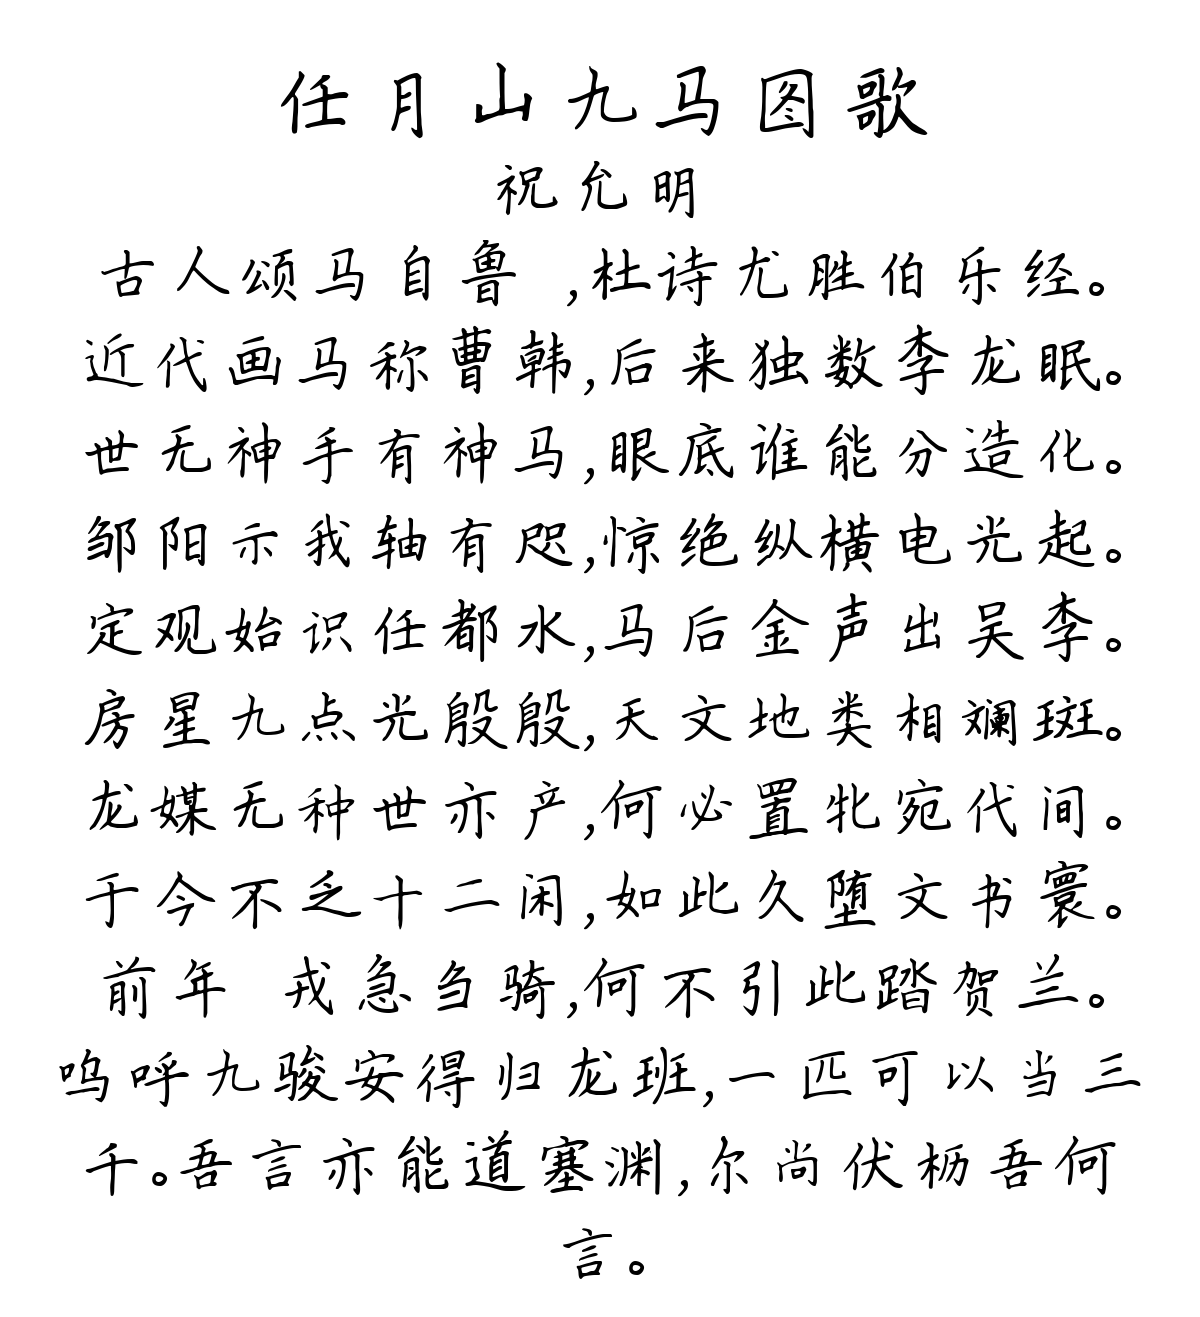 任月山九马图歌
祝允明
古人颂马自鲁 ,杜诗尤胜伯乐经。
近代画马称曹韩,后来独数李龙眠。
世无神手有神马,眼底谁能分造化。
邹阳示我轴有咫,惊绝纵横电光起。
定观始识任都水,马后金声出吴李。
房星九点光殷殷,天文地类相斓斑。
龙媒无种世亦产,何必置牝宛代间。
于今不乏十二闲,如此久堕文书寰。
前年 戎急刍骑,何不引此踏贺兰。
呜呼九骏安得归龙班,一匹可以当三
千。吾言亦能道塞渊,尔尚伏枥吾何
言。